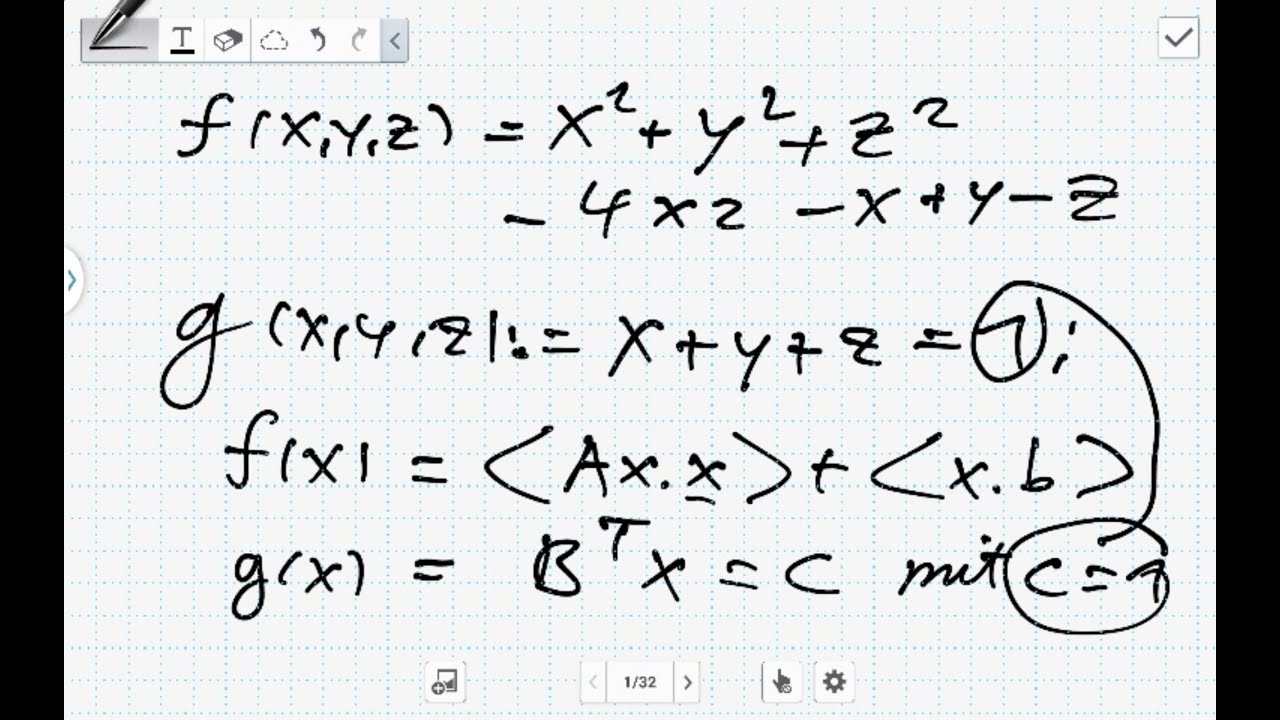 T
f(x,y,z) = x² + y² + z²
- 4xz - x + y - z
g(x,y,z) := x + y + z = 1;
f(x) = <Ax, x> + <x, b>
g(x) = Bᵀx = c mit c = 1
1/32